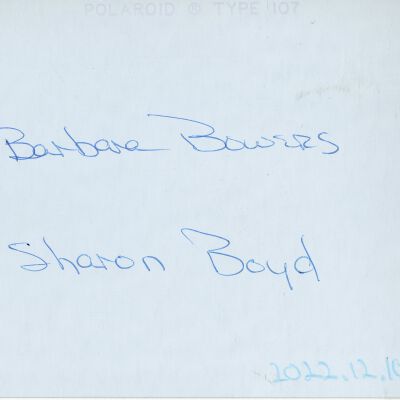 POLAROID ® TYPE 107
Barbara Bowers
Sharon Boyd
2022.12.10